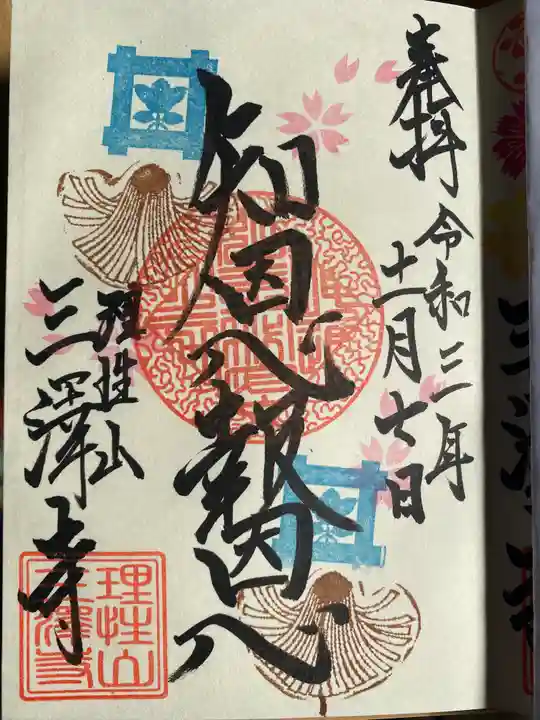 奉拝
令和三年
十一月七日
知恩報恩
理性山
三澤寺
理性山
三澤寺